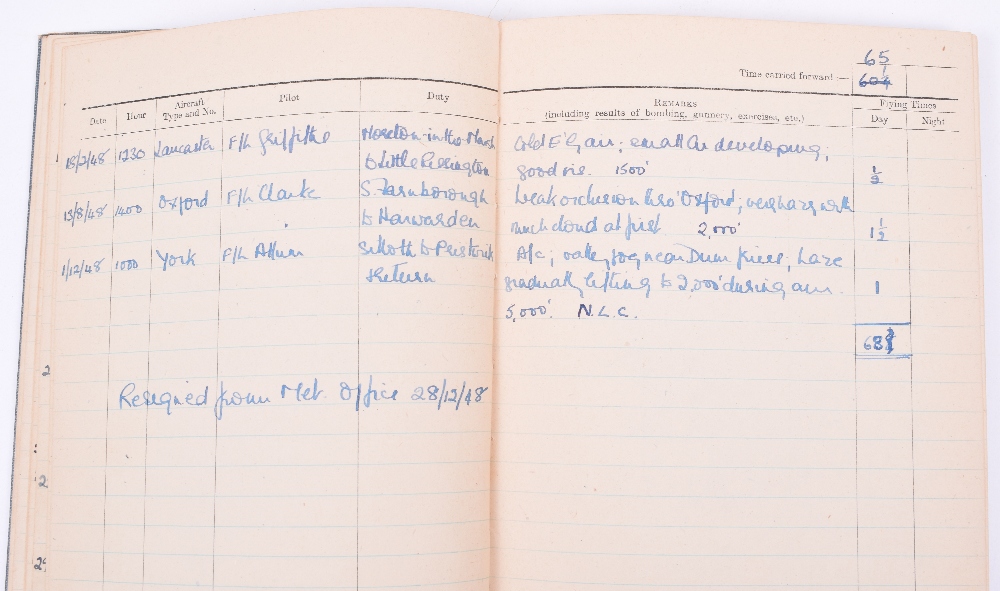 65
Time carried forward :—
Date Hour Aircraft Type and No. Pilot Duty
REMARKS
(including results of bombing, gunnery, exercises, etc.)
Flying Times
Day Night
1230 Lancaster F/Lt Griffiths Moreton-in-the-Marsh
to Little Rissington
Cold E'ly air; small Cu developing;
good vis. 1500' ½
13/8/48 1400 Oxford F/Lt Clarke S. Farnborough
to Hawarden
Weak occlusion thro' Oxford; very hazy with
much cloud at first 2,000' 1½
1/12/48 1000 York F/Lt Silloth to Prestwick
& Return
A/c; valley fog near Dumfries; haze
gradually lifting to 2,000' during a.m. 1
5,000'. N.L.C.
68
Resigned from Met. Office 28/12/48
2
2